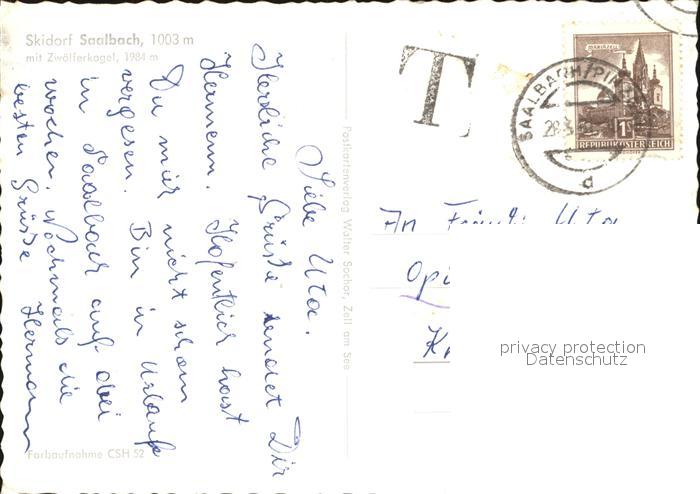 Skidorf Saalbach, 1003 m
mit Zwölferkogel, 1984 m
Liebe Uta.
Herzliche Grüße sendet Dir
Hermann. Hofentlich hast
Du mir nicht schon
vergesen. Bin in Urlaub
in Saalbach auf drei
wochen. Nochmals die
besten Grüße Hermann
Farbaufnahme CSH 52
Postkartenverlag Walter Sochor, Zell am See
T
MARIAZELL
1S
REPUBLIK ÖSTERREICH
SAALBACH
d
An Uta
Opi
privacy protection
Datenschutz